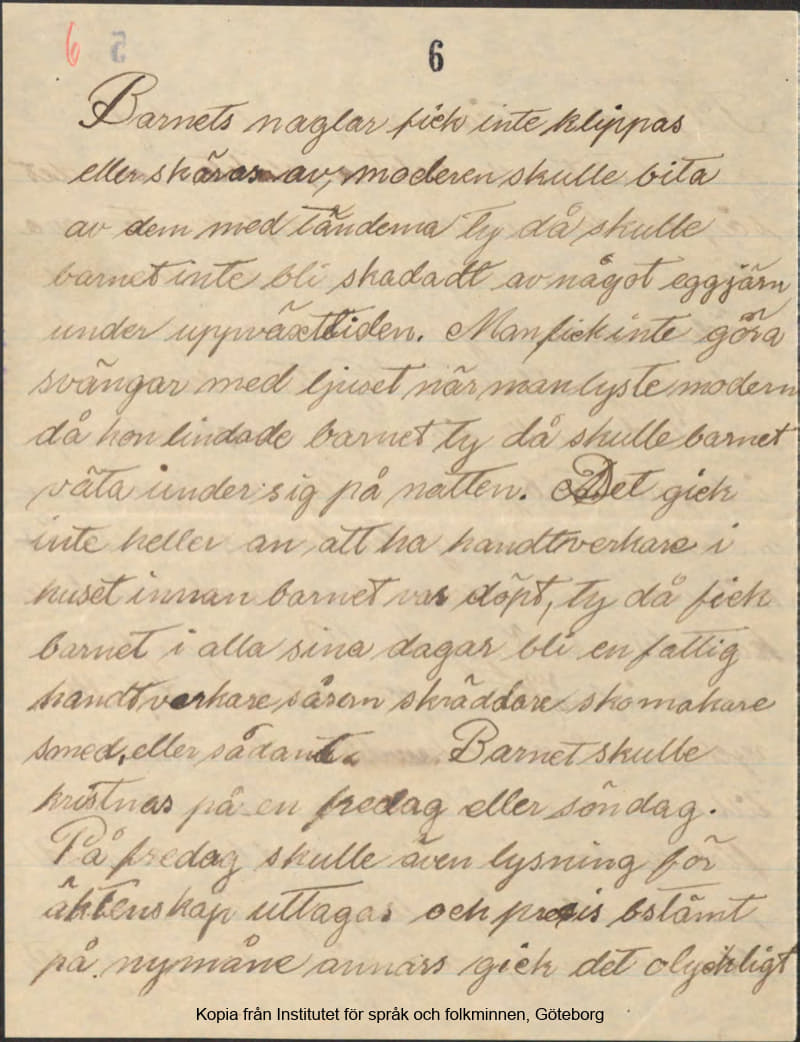 6 5 6
Barnets naglar fick inte klippas
eller skäras av, moderen skulle bita
av dem med tänderna ty då skulle
barnet inte bli skadadt av något eggjärn
under uppväxttiden. Man fick inte göra
svängar med ljuset när man lyste modern
då hon lindade barnet ty då skulle barnet
väta under sig på natten. Det gick
inte heller an att ha handtverkare i
huset innan barnet var döpt, ty då fick
barnet i alla sina dagar bli en fattig
handtverkare, såsom skräddare skomakare
smed, eller sådant. Barnet skulle
kristnas på en fredag eller söndag.
På fredag skulle även lysning för
äktenskap uttagas och presis bstämt
på nymåne annars gick det olyckligt
Kopia från Institutet för språk och folkminnen, Göteborg